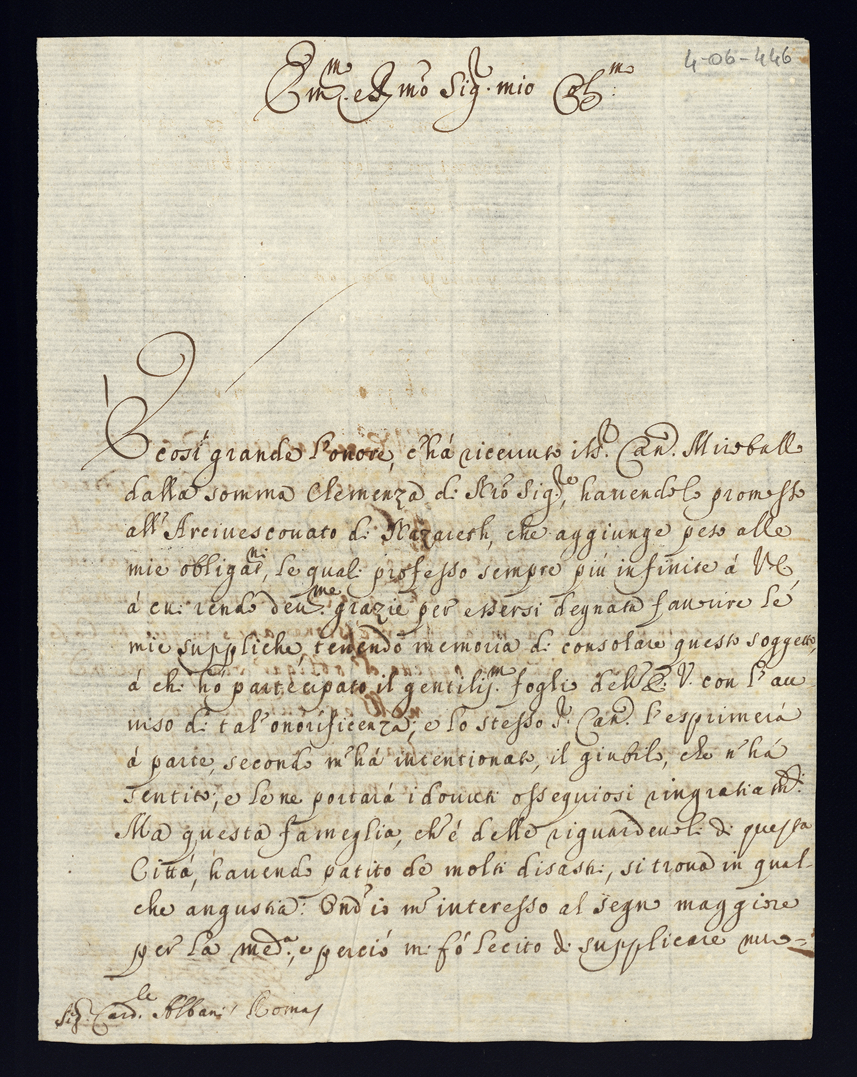 4-06-446
Em.mo e R.mo Sig.r mio Oss.mo
È così grande l'onore, c'há riceuuto il S.r Can.co Mirebelli
dalla somma Clemenza di N̄ro Sig.re, hauendolo promosso
all'Arciuescouato di Nazareth, che aggiunge peso alle
mie obligaz.ni, le quali professo sempre più infinite á VE
á cui rendo deu.me grazie per essersi degnata fauorire le
mie suppliche, tenendo memoria di consolare questo soggetto,
á chi hó partecipato il gentiliss.mo foglio dell'E. V. con l'au
uiso di tal'onorificenza; e lo stesso S.r Can.co l'esprimerá
á parte, secondo m'há intentionato, il giubilo, che n'há
sentito, e le ne portará i douuti ossequiosi ringratiam.ti
Ma questa fameglia, ch'é delle riguardeuoli di questa
Cittá, hauendo patito de molti disastri, si troua in qual-
che angustia: Ond'io m'interesso al segno maggiore
per la med.a, e perció mi fó lecito di supplicare nuo=
Sig. Card.le Albani Roma